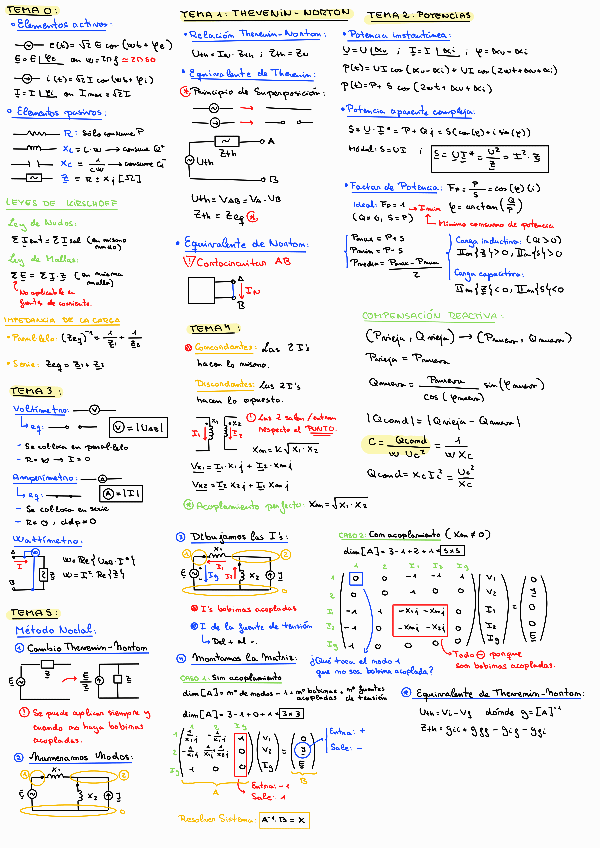 TEMA 0:
• Elementos activos:
e(t) = √2 E cos(wt + φe)
E = E∠φe en w = 2πf ≃ 2π50
i(t) = √2 I cos(wt + φi)
I = I∠φi en Imax = √2 I
• Elementos pasivos:
R: Sólo consume P
XL = L·w → consume Q+
XC = 1/(C·w) → consume Q-
Z = R ± Xj [Ω]
LEYES DE KIRSCHOFF
Ley de Nudos:
ΣI ent = ΣI sal (en mismo nudo)
Ley de Mallas:
ΣE = ΣI·Z (en misma malla)
No aplicable en
fuente de corriente.
IMPEDANCIA DE LA CARGA
• Paralelo: (Zeq)⁻¹ = 1/Z1 + 1/Z2
• Serie: Zeq = Z1 + Z2
TEMA 3:
Voltímetro: V
eq: V = |UAB|
- Se coloca en paralelo
- R = ∞ → I = 0
Amperímetro: A
eq: A = |I|
- Se coloca en serie
- R = 0, ddp = 0
Wattímetro:
W = Re{UAB·I*}
W = I²·Re{Z}
TEMA 5:
Método Nodal:
① Cambio Thevenin-Norton
! Se puede aplicar siempre y
cuando no haya bobinas
acopladas.
② Numeramos Nudos:
TEMA 1: THEVENIN - NORTON
• Relación Thevenin-Norton:
Uth = IN·Zth ; Zth = ZN
• Equivalente de Thevenin:
Principio de Superposición:
Zth
Uth
A
B
Uth = VAB = VA - VB
Zth = Zeq
• Equivalente de Norton:
! Cortocircuitar AB
A
IN
B
TEMA 4:
Concordantes: Las 2 I's
hacen lo mismo.
Discordantes: Las 2 I's
hacen lo opuesto.
X1 X2
I1 I2
! Las 2 salen/entran
respecto al PUNTO.
Xm = K√(X1·X2)
VX1 = I1·X1j + I2·Xmj
VX2 = I2·X2j + I1·Xmj
Acoplamiento perfecto: Xm = √(X1·X2)
③ Dibujamos las I's:
I's bobinas acopladas
I de la fuente de tensión
Del + al -.
④ Montamos la Matriz:
CASO 1: Sin acoplamiento
dim[A] = nº de nudos - 1 + nº bobinas acopladas + nº fuentes de tensión
dim[A] = 3 - 1 + 0 + 1 = 3x3
Entra: +
Sale: -
Entra: -1
Sale: 1
A
B
Resolver Sistema: A⁻¹·B = X
TEMA 2: POTENCIAS
• Potencia instantánea:
U = U∠αu ; I = I∠αi ; φ = αu - αi
p(t) = UI cos(αu - αi) + UI cos(2wt + αu + αi)
p(t) = P + S cos(2wt + αu + αi)
• Potencia aparente compleja:
S = U·I* = P + Qj = S(cos(φ) + i sin(φ))
Módul: S = UI ; S = UI* = U²/Z* = I²·Z
• Factor de Potencia: FP = P/S = cos(φ) (i)
Ideal: FP = 1 → Imin φ = arctan(Q/P)
(Q = 0, S = P) Mínimo consumo de potencia
Pmax = P + S
Pmin = P - S
Carga inductiva: (Q > 0)
Im{Z} > 0, Im{S} > 0
Carga capacitiva:
Im{Z} < 0, Im{S} < 0
COMPENSACIÓN REACTIVA:
(Pvieja, Qvieja) → (Pnueva, Qnueva)
Pvieja = Pnueva
Qnueva = Pnueva/cos(φnueva) sin(φnueva)
|Qcond| = |Qvieja - Qnueva|
C = Qcond/(w Uc²) = 1/(w Xc)
Qcond = Xc Ic² = Uc²/Xc
CASO 2: Con acoplamiento (Xm ≠ 0)
dim[A] = 3 - 1 + 2 + 1 = 5x5
¿Qué toca el nudo 1
que no sea bobina acoplada?
Todo ⊖ porque
son bobinas acopladas.
Equivalente de Thevenin-Norton:
Uth = Vi - Vj donde y = [A]⁻¹
Zth = yii + yjj - yij - yji